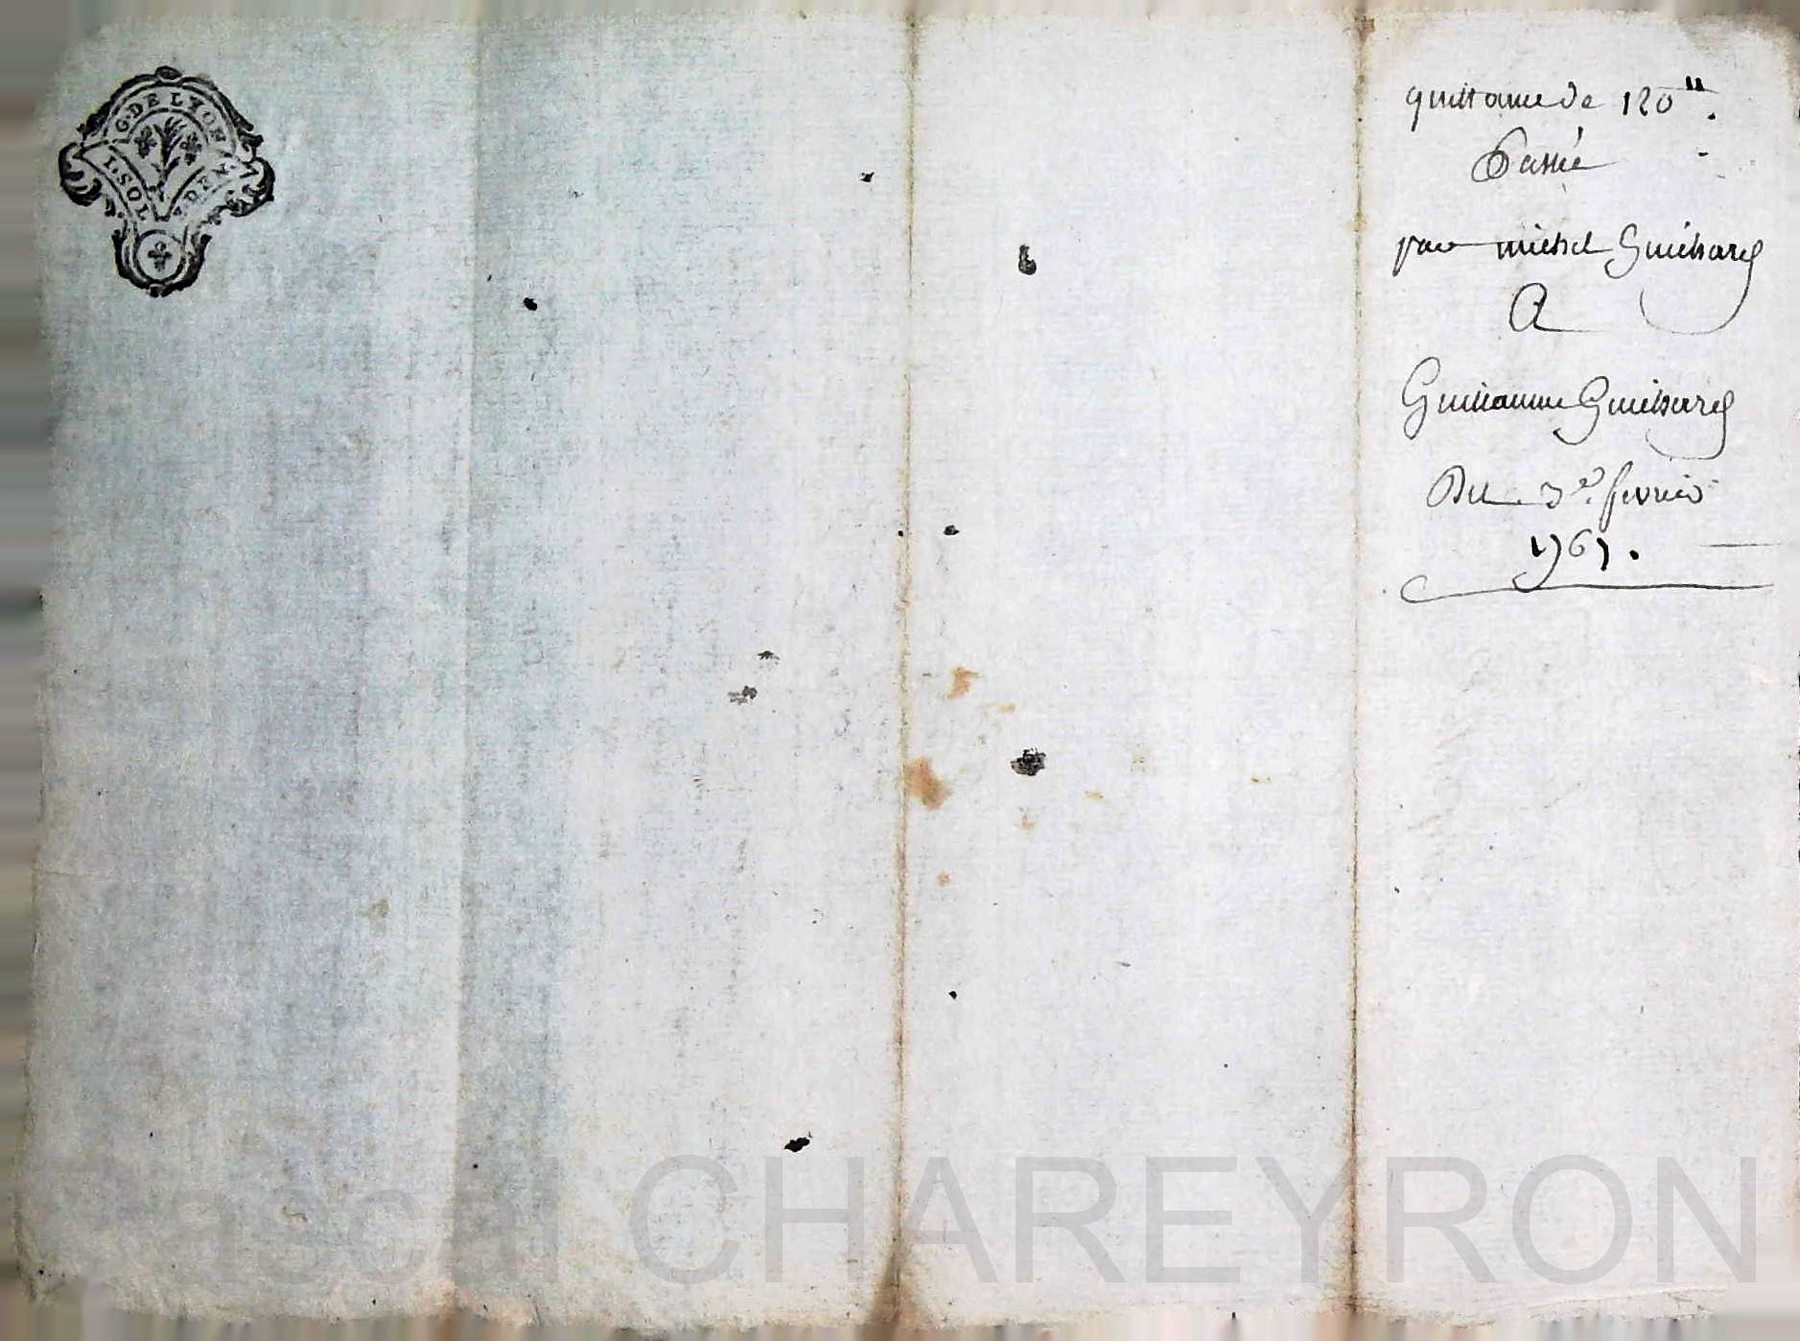 G. DE LYON
1. SOL
4. DEN.
quittance de 120ᵗᵗ.
Passée
par michel Guichard
A
Guillaume Guichard
Du 3e. fevrier
1767.
ascal CHAREYRON